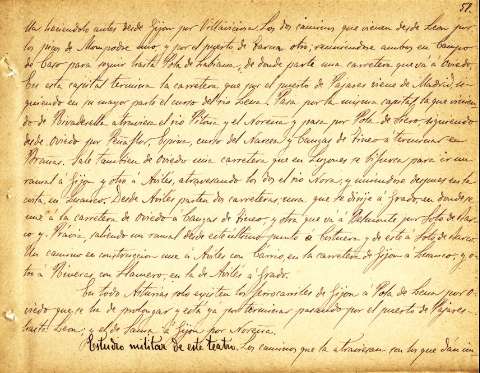 51.
Un haciendolo antes desde Gijón por Villaviciosa. Los dos caminos que vienen desde Leon por
los picos de Mampodre uno, y por el puerto de Tarna otro, reuniendose ambos en Campo
de Caso para seguir hasta Pola de Labiana, de donde parte una carretera que va á Oviedo.
En esta capital termina la carretera que por el puerto de Pajares viene de Madrid, si-
guiendo en su mayor parte el curso del rio Lena. Pasa por la misma capital la que vinien-
do de Rivadesella atraviesa el rio Piloña y el Noreña y pasa por Pola de Siero, siguiendo
desde Oviedo por Peñaflor, Espina, curso del Narcea y Cangas de Tineo á terminar en
Brañas. Sale tambien de Oviedo una carretera que en Lugones se bifurca para ir un
ramal á Gijón y otro á Aviles, atravesando los dos el rio Nora, y uniendose despues en la
costa, en Luanco. Desde Aviles parten dos carreteras, una que se dirije á Grado, en donde se
une á la carretera de Oviedo á Cangas de Tineo, y otra que vá á Belmonte por Soto de Bar-
co y Pravia, saliendo un ramal desde este ultimo punto á Cudillero, y de este á Soto de Barco.
Un camino en construcion une á Aviles con Carrio, en la carretera de Gijón á Luanco, y o-
tro á Piñeras, con Llanero, en la de Aviles á Grado.
En todo Asturias solo existen los ferrocarriles de Gijón á Pola de Lena por O-
viedo que se ha de prolongar y está ya por terminar pasando por el puerto de Pajares
hasta Leon; y el de Sama á Gijón por Noreña.
Estudio militar de este teatro. Los caminos que la atraviesan son los que dán im-